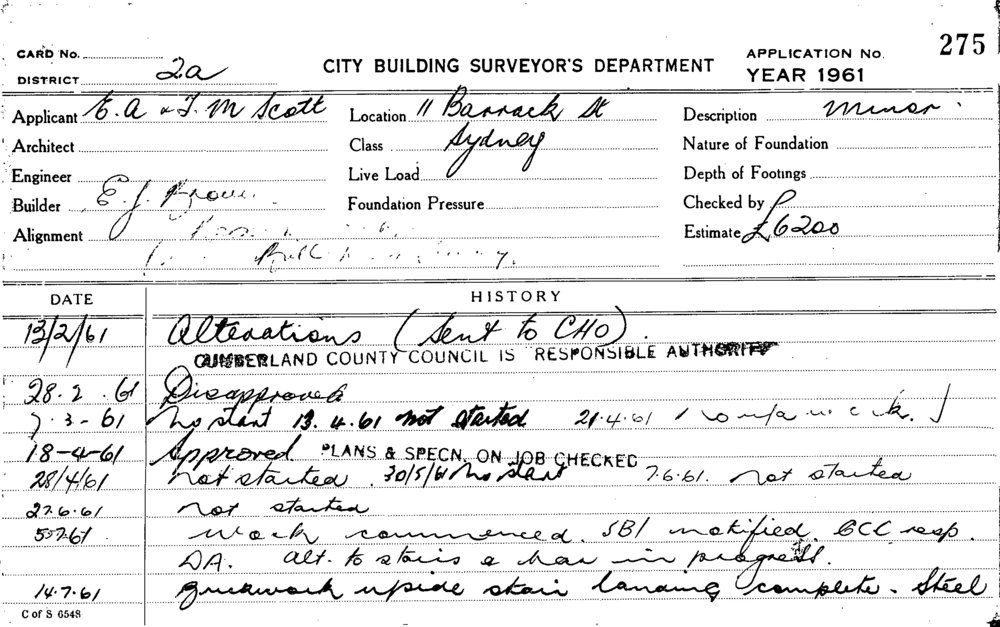 275
CARD No.
APPLICATION No.
DISTRICT 2a
CITY BUILDING SURVEYOR'S DEPARTMENT
YEAR 1961
Applicant E. A & J. M Scott
Location 11 Barrack St
Description Minor
Architect
Class Sydney
Nature of Foundation
Engineer
Live Load
Depth of Footings
Builder E. J.
Foundation Pressure
Checked by
Alignment
Estimate £6200
DATE HISTORY
13/2/61 Alterations (Sent to CHO).
CUMBERLAND COUNTY COUNCIL IS RESPONSIBLE AUTHORITY
28.2.61 Disapproved
7-3-61 No start 13.4.61 not started 21.4.61
18-4-61 Approved. PLANS & SPECN. ON JOB CHECKED
28/4/61 not started. 30/5/61 No start 7.6.61. not started
27.6.61 not started
5.7.61 work commenced. SBI notified. CCC resp.
DA. alt. to stairs & bar in progress.
14.7.61 Brickwork upside stair landing complete. Steel
C of S 6548